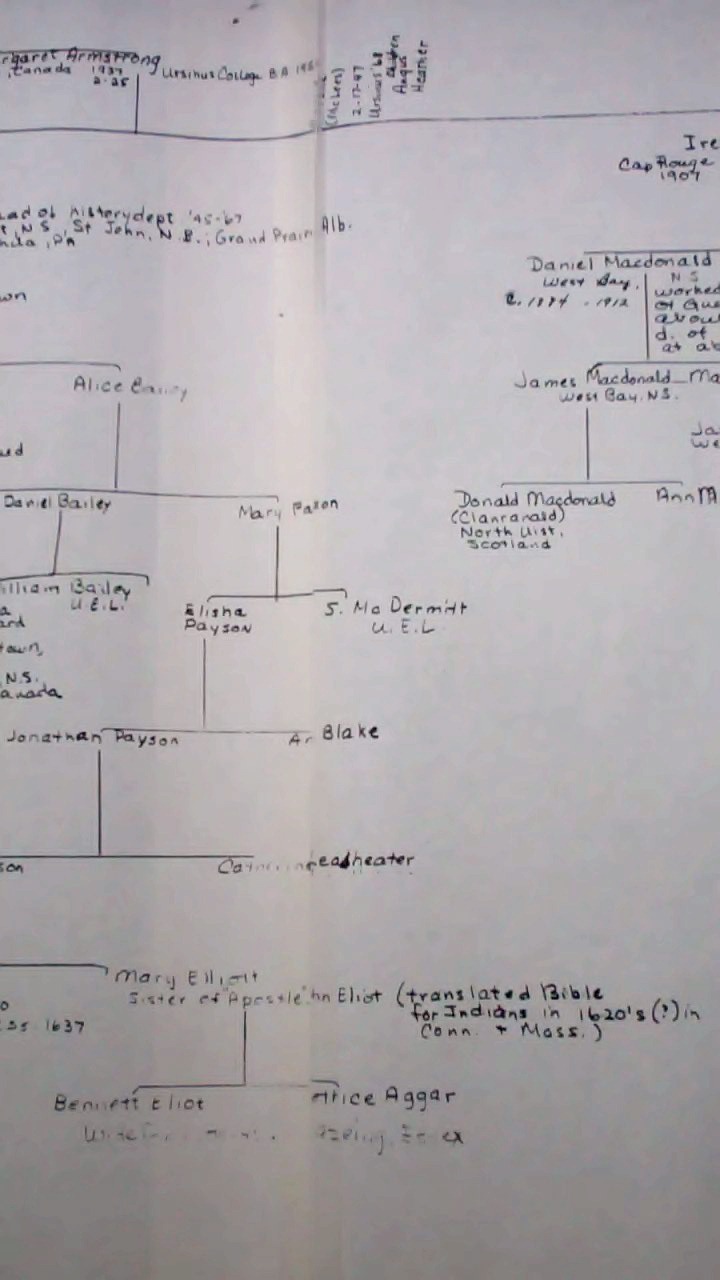 rgaret Armstrong
, Canada 1937
2-25
Ursinus College B A 195
(McLees)
2-17-47
Ursinus '68
Angus
Heather
Ire
Cap Rouge
1907
ead of history dept '45-67
t, N S , St John, N.B. ; Grand Prair Alb.
nda , PA
own
Daniel Macdonald
West Bay, N S
c. 1884 - 1912
worked
of Que
abou
d. of
at ab
Alice Bailey
James Macdonald Ma
West Bay, N.S.
Ja
We
ed
Daniel Bailey
Mary Paxon
Donald Macdonald
(Clanranald)
North Uist,
Scotland
Ann M
illiam Bailey
U.E.L.
a
ard
town,
N.S.
anada
Elisha
Payson
S. Mc Dermitt
U. E. L
Jonathan Payson
Ar Blake
son
eadheater
Mary Elliott
Sister of "Apostle" hn Eliot (translated Bible
for Indians in 1620's (?) in
Conn. + Mass.)
o
1637
Bennett Eliot
Aggar